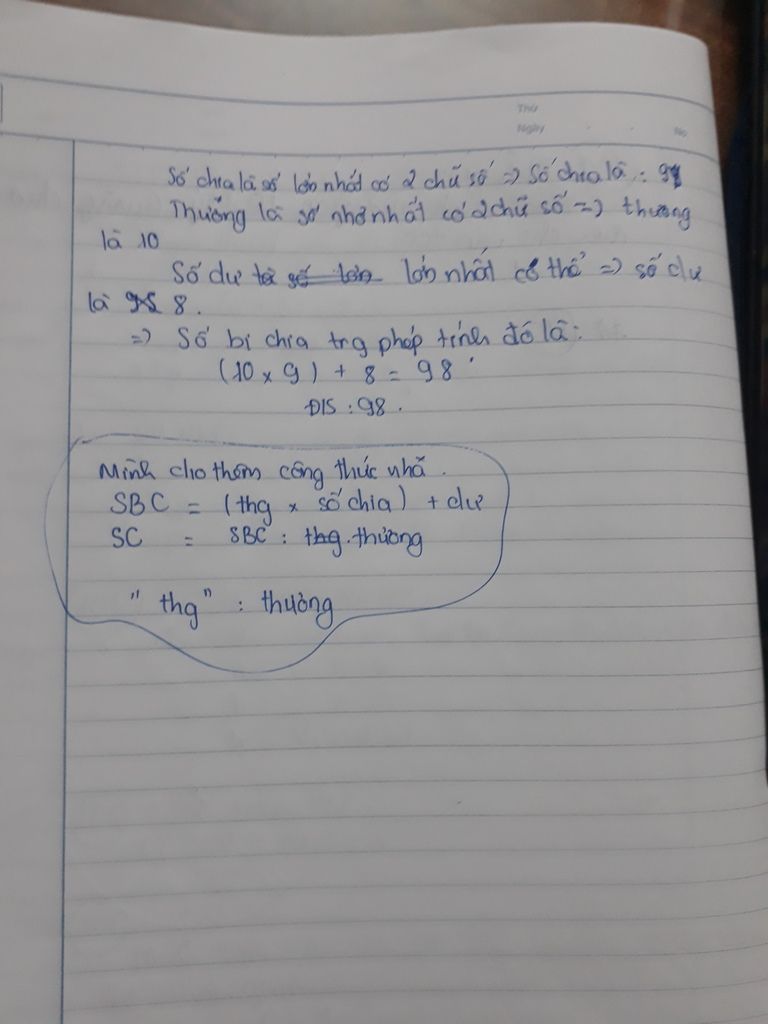 Thứ
Ngày No
Số chia là số lớn nhất có 2 chữ số => Số chia là : 9
Thương là số nhỏ nhất có 2 chữ số => thương
là 10
Số dư là số lớn lớn nhất có thể => số dư
là 8.
=> Số bị chia trg phép tính đó là:
(10 x 9) + 8 = 98
Đ/S : 98.
Mình cho thêm công thức nhã.
SBC = (thg x số chia) + dư
SC = SBC : thg. thương
" thg" : thương